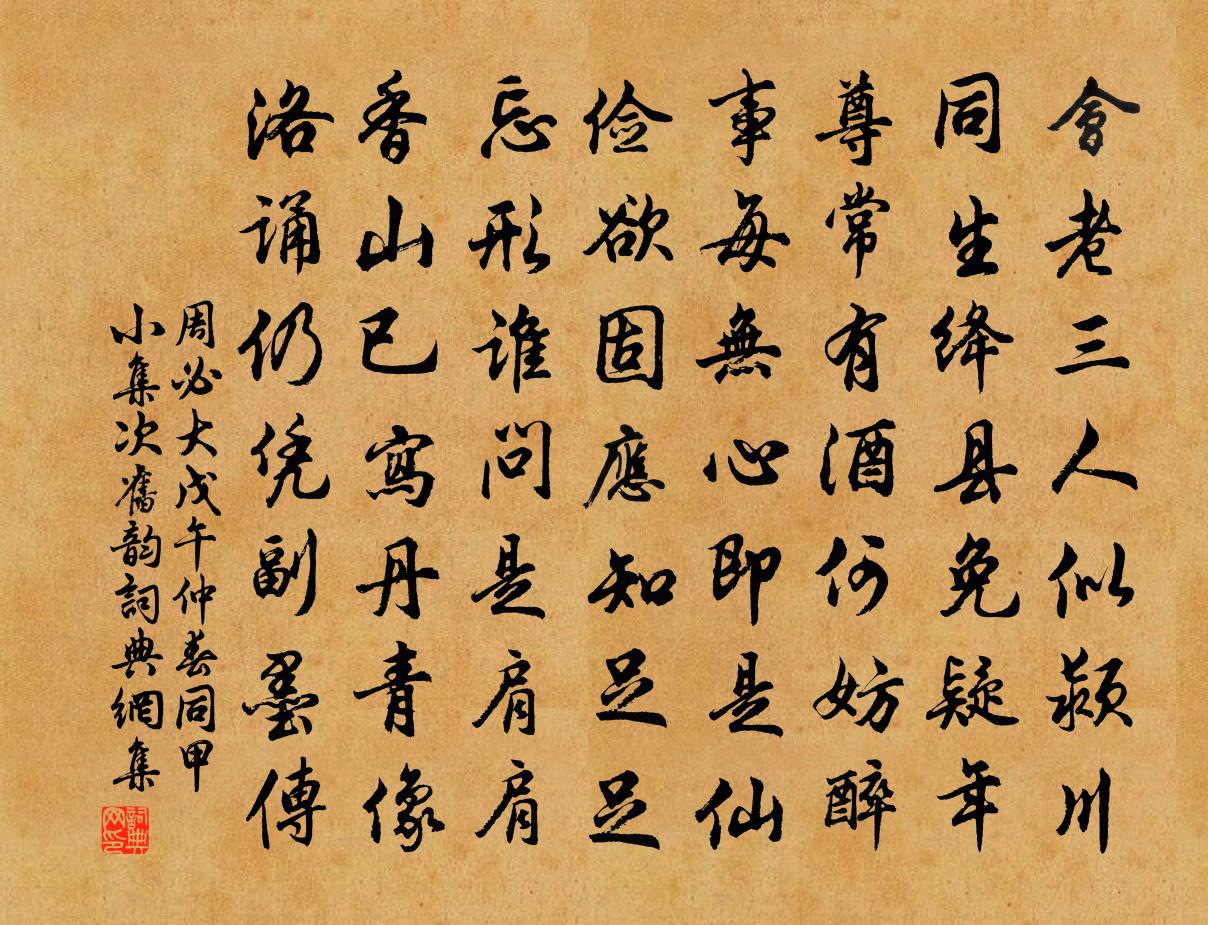 會老三人似颍川
同生绛县免疑年
尊常有酒何妨醉
事每無心即是仙
俭欲固應知足足
忘形谁问是肩肩
香山已寫丹青像
洛诵仍凭副墨傳
周必大戊午仲春同甲
小集次舊韵詞典網集
詞典网印